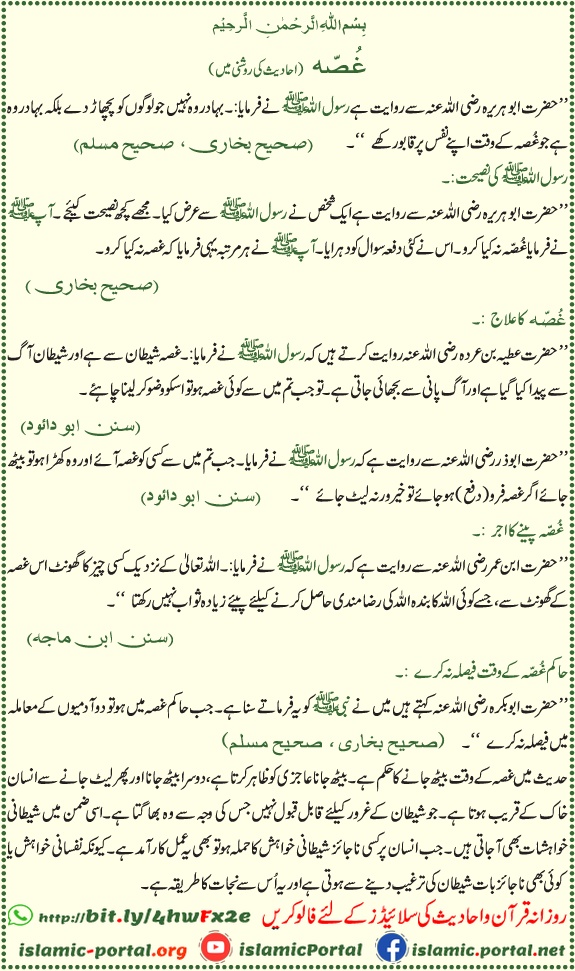 بِسْمِ اللهِ الرَّحْمٰنِ الرَّحِيْمِ
غُصّه (احادیث کی روشنی میں)
’’حضرت ابو ہریرہ رضی اللہ عنہ سے روایت ہے رسول اللہ ﷺ نے فرمایا:۔ بہادر وہ نہیں جو لوگوں کو پچھاڑ دے بلکہ بہادر وہ
ہے جو غُصہ کے وقت اپنے نفس پر قابو رکھے ‘‘۔ (صحیح بخاری ، صحیح مسلم)
رسول اللہ ﷺ کی نصیحت:۔
’’حضرت ابو ہریرہ رضی اللہ عنہ سے روایت ہے ایک شخص نے رسول اللہ ﷺ سے عرض کیا۔ مجھے کچھ نصیحت کیجئے۔ آپ ﷺ
نے فرمایا غُصّہ نہ کیا کرو۔ اس نے کئی دفعہ سوال کو دہرایا۔ آپ ﷺ نے ہر مرتبہ یہی فرمایا کہ غصہ نہ کیا کرو۔
(صحیح بخاری)
غُصّہ کا علاج :۔
’’حضرت عطیہ بن عردہ رضی اللہ عنہ روایت کرتے ہیں کہ رسول اللہ ﷺ نے فرمایا:۔ غصہ شیطان سے ہے اور شیطان آگ
سے پیدا کیا گیا ہے اور آگ پانی سے بجھائی جاتی ہے۔ تو جب تم میں سے کوئی غصہ ہو تو اسکو وضو کر لینا چاہئے۔
(سنن ابو دائود)
’’حضرت ابوذر رضی اللہ عنہ سے روایت ہے کہ رسول اللہ ﷺ نے فرمایا۔ جب تم میں سے کسی کو غصہ آئے اور وہ کھڑا ہو تو بیٹھ
جائے اگر غصہ فرو (دفع) ہو جائے تو خیر ورنہ لیٹ جائے ‘‘۔ (سنن ابو دائود)
غُصّہ پینے کا اجر :۔
’’حضرت ابن عمر رضی اللہ عنہ سے روایت ہے کہ رسول اللہ ﷺ نے فرمایا:۔ اللہ تعالیٰ کے نزدیک کسی چیز کا گھونٹ اس غصہ
کے گھونٹ سے، جسے کوئی اللہ کا بندہ اللہ کی رضا مندی حاصل کرنے کیلئے پیئے زیادہ ثواب نہیں رکھتا ‘‘۔
(سنن ابن ماجه)
حاکم غُصّہ کے وقت فیصلہ نہ کرے :۔
’’حضرت ابوبکرہ رضی اللہ عنہ کہتے ہیں میں نے نبی ﷺ کو یہ فرماتے سنا ہے۔ جب حاکم غصہ میں ہو تو دو آدمیوں کے معاملہ
میں فیصلہ نہ کرے ‘‘۔ (صحیح بخاری ، صحیح مسلم)
حدیث میں غصہ کے وقت بیٹھ جانے کا حکم ہے۔ بیٹھ جانا عاجزی کو ظاہر کرتا ہے، دوسرا بیٹھ جانا اور پھر لیٹ جانے سے انسان
خاک کے قریب ہوتا ہے۔ جو شیطان کے غرور کیلئے قابل قبول نہیں جس کی وجہ سے وہ بھاگتا ہے۔ اسی ضمن میں شیطانی
خواہشات بھی آ جاتی ہیں۔ جب انسان پر کسی ناجائز شیطانی خواہش کا حملہ ہو تو بھی یہ عمل کارآمد ہے۔ کیونکہ نفسانی خواہش یا
کوئی بھی ناجائز بات شیطان کی ترغیب دینے سے ہوتی ہے اور یہ اُس سے نجات کا طریقہ ہے۔
روزانہ قرآن و احادیث کی سلائیڈز کے لئے فالو کریں http://bit.ly/4hwFx2e
islamic-portal.org islamicPortal islamic.portal.net